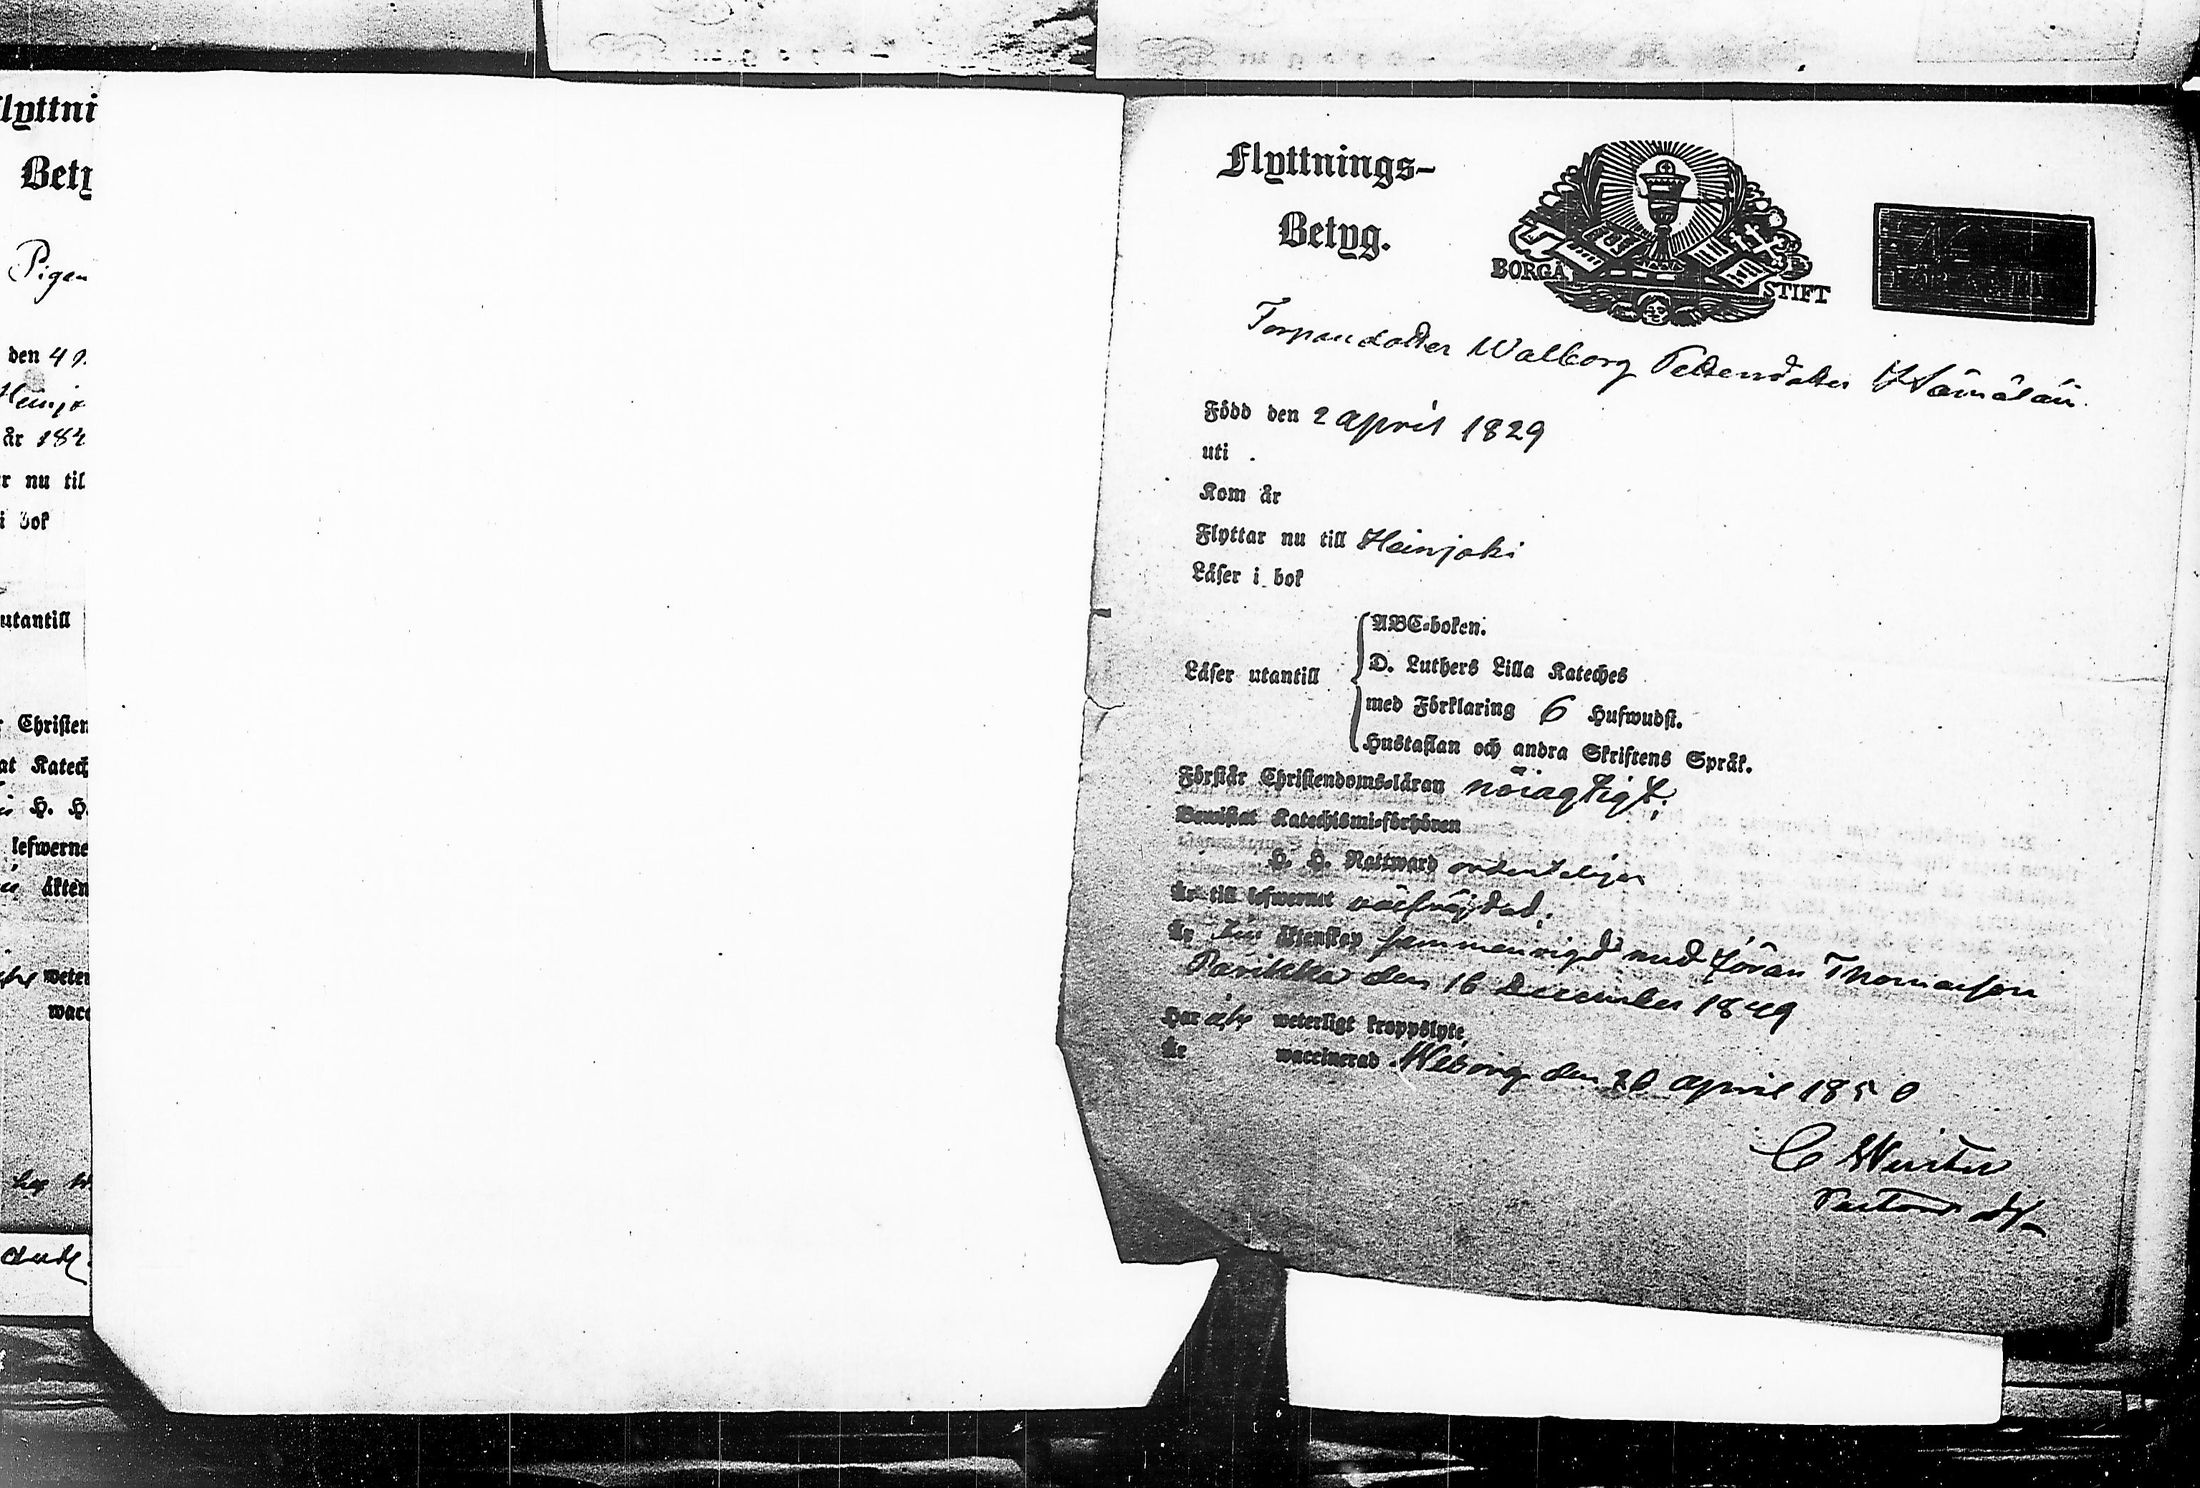 lyttni
Bety
Pigan
den 4
Heinjo
år 184
r nu til
i bok
utantill
r Christen
at Katech
H. H.
lefwerne
äkten
weter
wacc
Flyttnings-
Betyg.
BORGÅ STIFT
Torparedotter Walborg Pettersdotter Hämäläin
Född den 2 April 1829
uti .
Kom år
Flyttar nu till Heinjoki
Läser i bok
ABC-boken.
D. Luthers Lilla Kateches
Läser utantill
med Förklaring 6 Hufwudst.
Hustaflan och andra Skriftens Språk.
Förstår Christendoms-läran nöiagtigt;
Bewistat Katechismi-förhören
H. H. Nattward ordenteligen
Är till lefwernet wälfräjdad;
Är till äktenskap sammanvigd med Jöran Thomasson
Parikka den 16 December 1849
Har ej weterligt kroppslyte
Är waccinerad. Wiborg den 26 April 1850
C Winter
Pastor